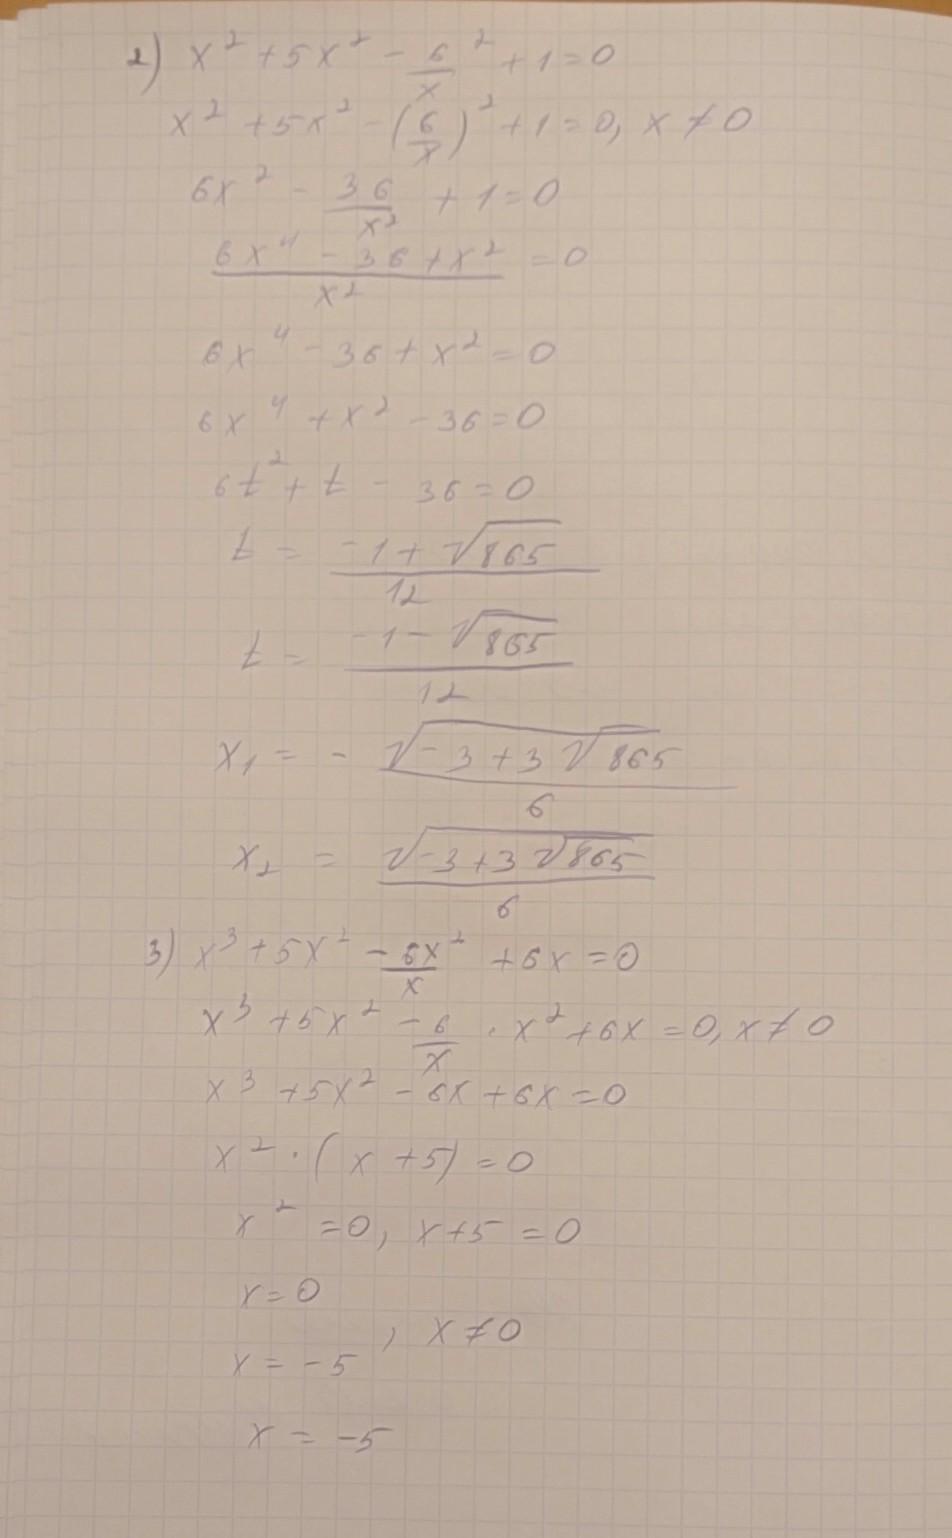 2) x² + 5x² - 6/x ² + 1 = 0
x² + 5x² - (6/x)² + 1 = 0, x ≠ 0
6x² - 36/x² + 1 = 0
(6x⁴ - 36 + x²)/x² = 0
6x⁴ - 36 + x² = 0
6x⁴ + x² - 36 = 0
6t² + t - 36 = 0
t = (-1 + √865)/12
t = (-1 - √865)/12
x₁ = - √(-3 + 3√865)/6
x₂ = √(-3 + 3√865)/6
3) x³ + 5x² - 6x²/x + 6x = 0
x³ + 5x² - 6/x · x² + 6x = 0, x ≠ 0
x³ + 5x² - 6x + 6x = 0
x² · (x + 5) = 0
x² = 0, x + 5 = 0
x = 0
, x ≠ 0
x = -5
x = -5